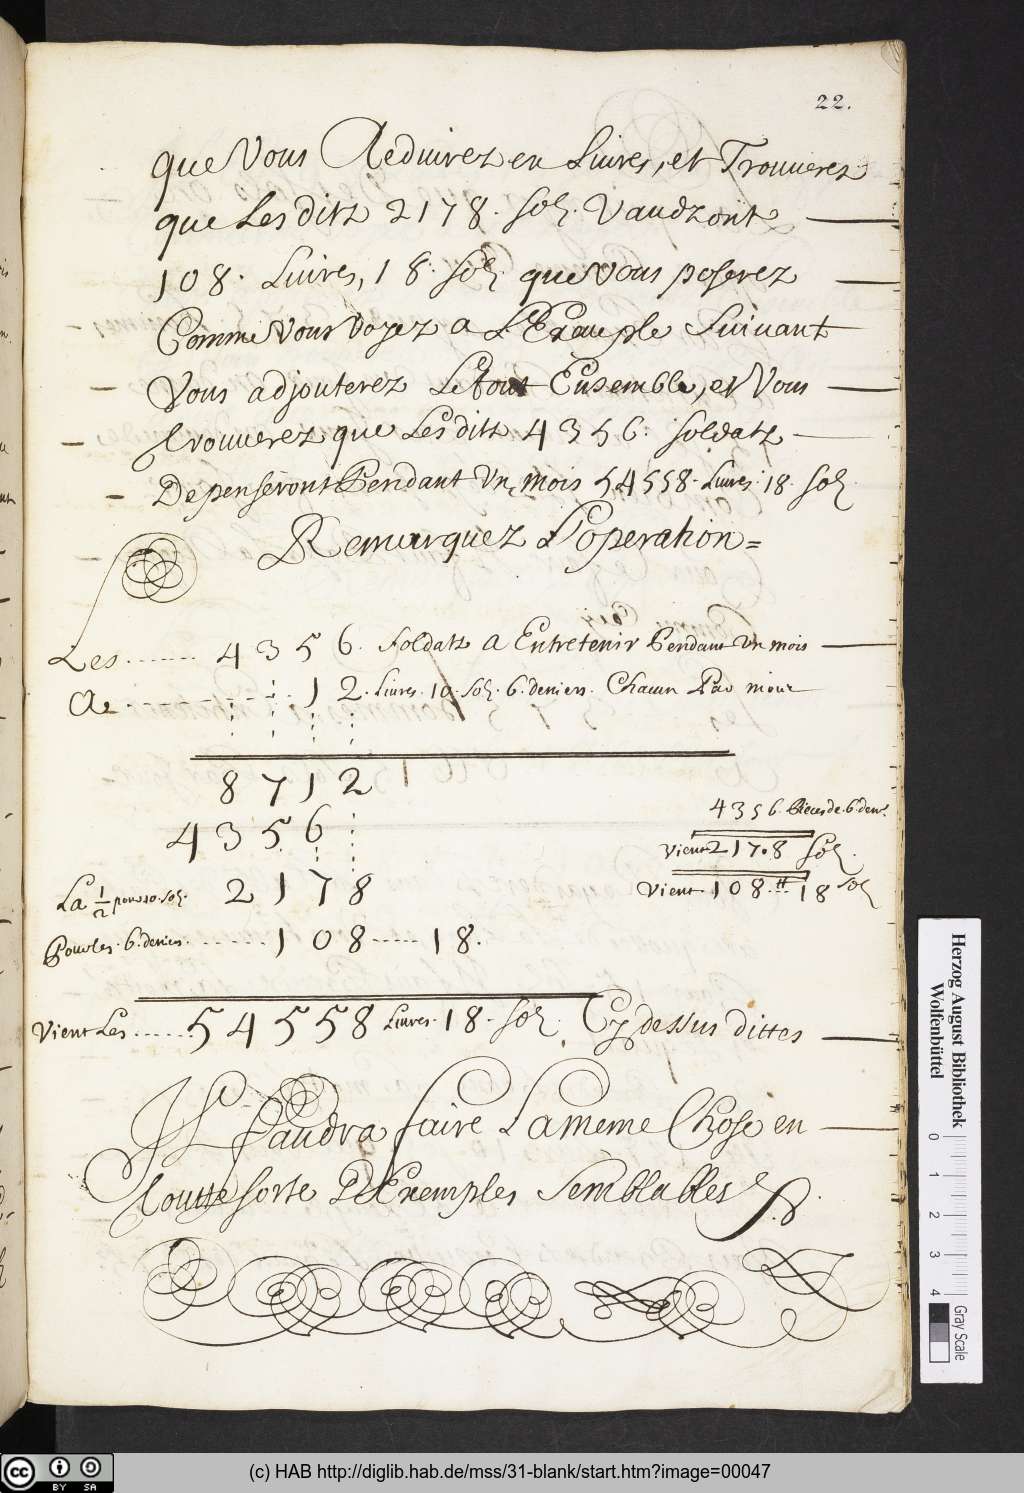 22.
que Vous Reduirez en Livres, et Trouverez
que Les ditz 2178. sols. Vaudzont
108. Livres, 18. Sols que Vous poserez
Comme Vous Voyez a L'Exemple Suivant
Vous adjouterez Le tout Ensemble, et Vous
trouverez que Les ditz 4356. soldatz
Depenseront Pendant Un, mois 54558. Livres. 18. Sols
Remarquez L'operation =
Les ....... 4356. Soldatz a Entretenir Pendant Un mois
A ............. 12. Livres. 10. Sols. 6. deniers. Chacun Par mois
8712
4356
La 1/2 pour 10. sols. 2178
Pour les. 6. deniers. ...... 108 ..... 18.
4356. Pieces de. 6. den.
Vient 2178 Sols.
Vient. 108. tt 18 sols
Vient Les ..... 54558 Livres. 18. sols. Cy dessus dittes
Il Faudra faire La meme Chose en
toutte sorte D'Exemples Semblables
Herzog August Bibliothek
Wolfenbüttel
0 1 2 3 4
Gray Scale
cc BY SA
(c) HAB http://diglib.hab.de/mss/31-blank/start.htm?image=00047